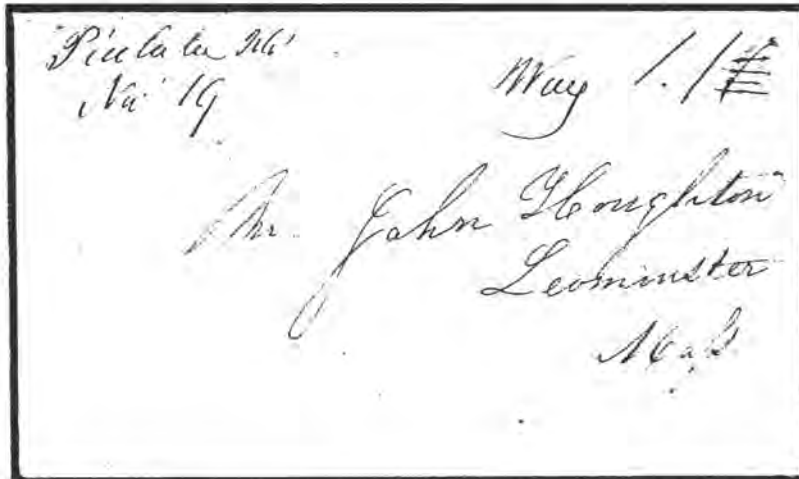 Picolata
19
Way 1.1
Mr. John Houghton
Leominster
Mass.